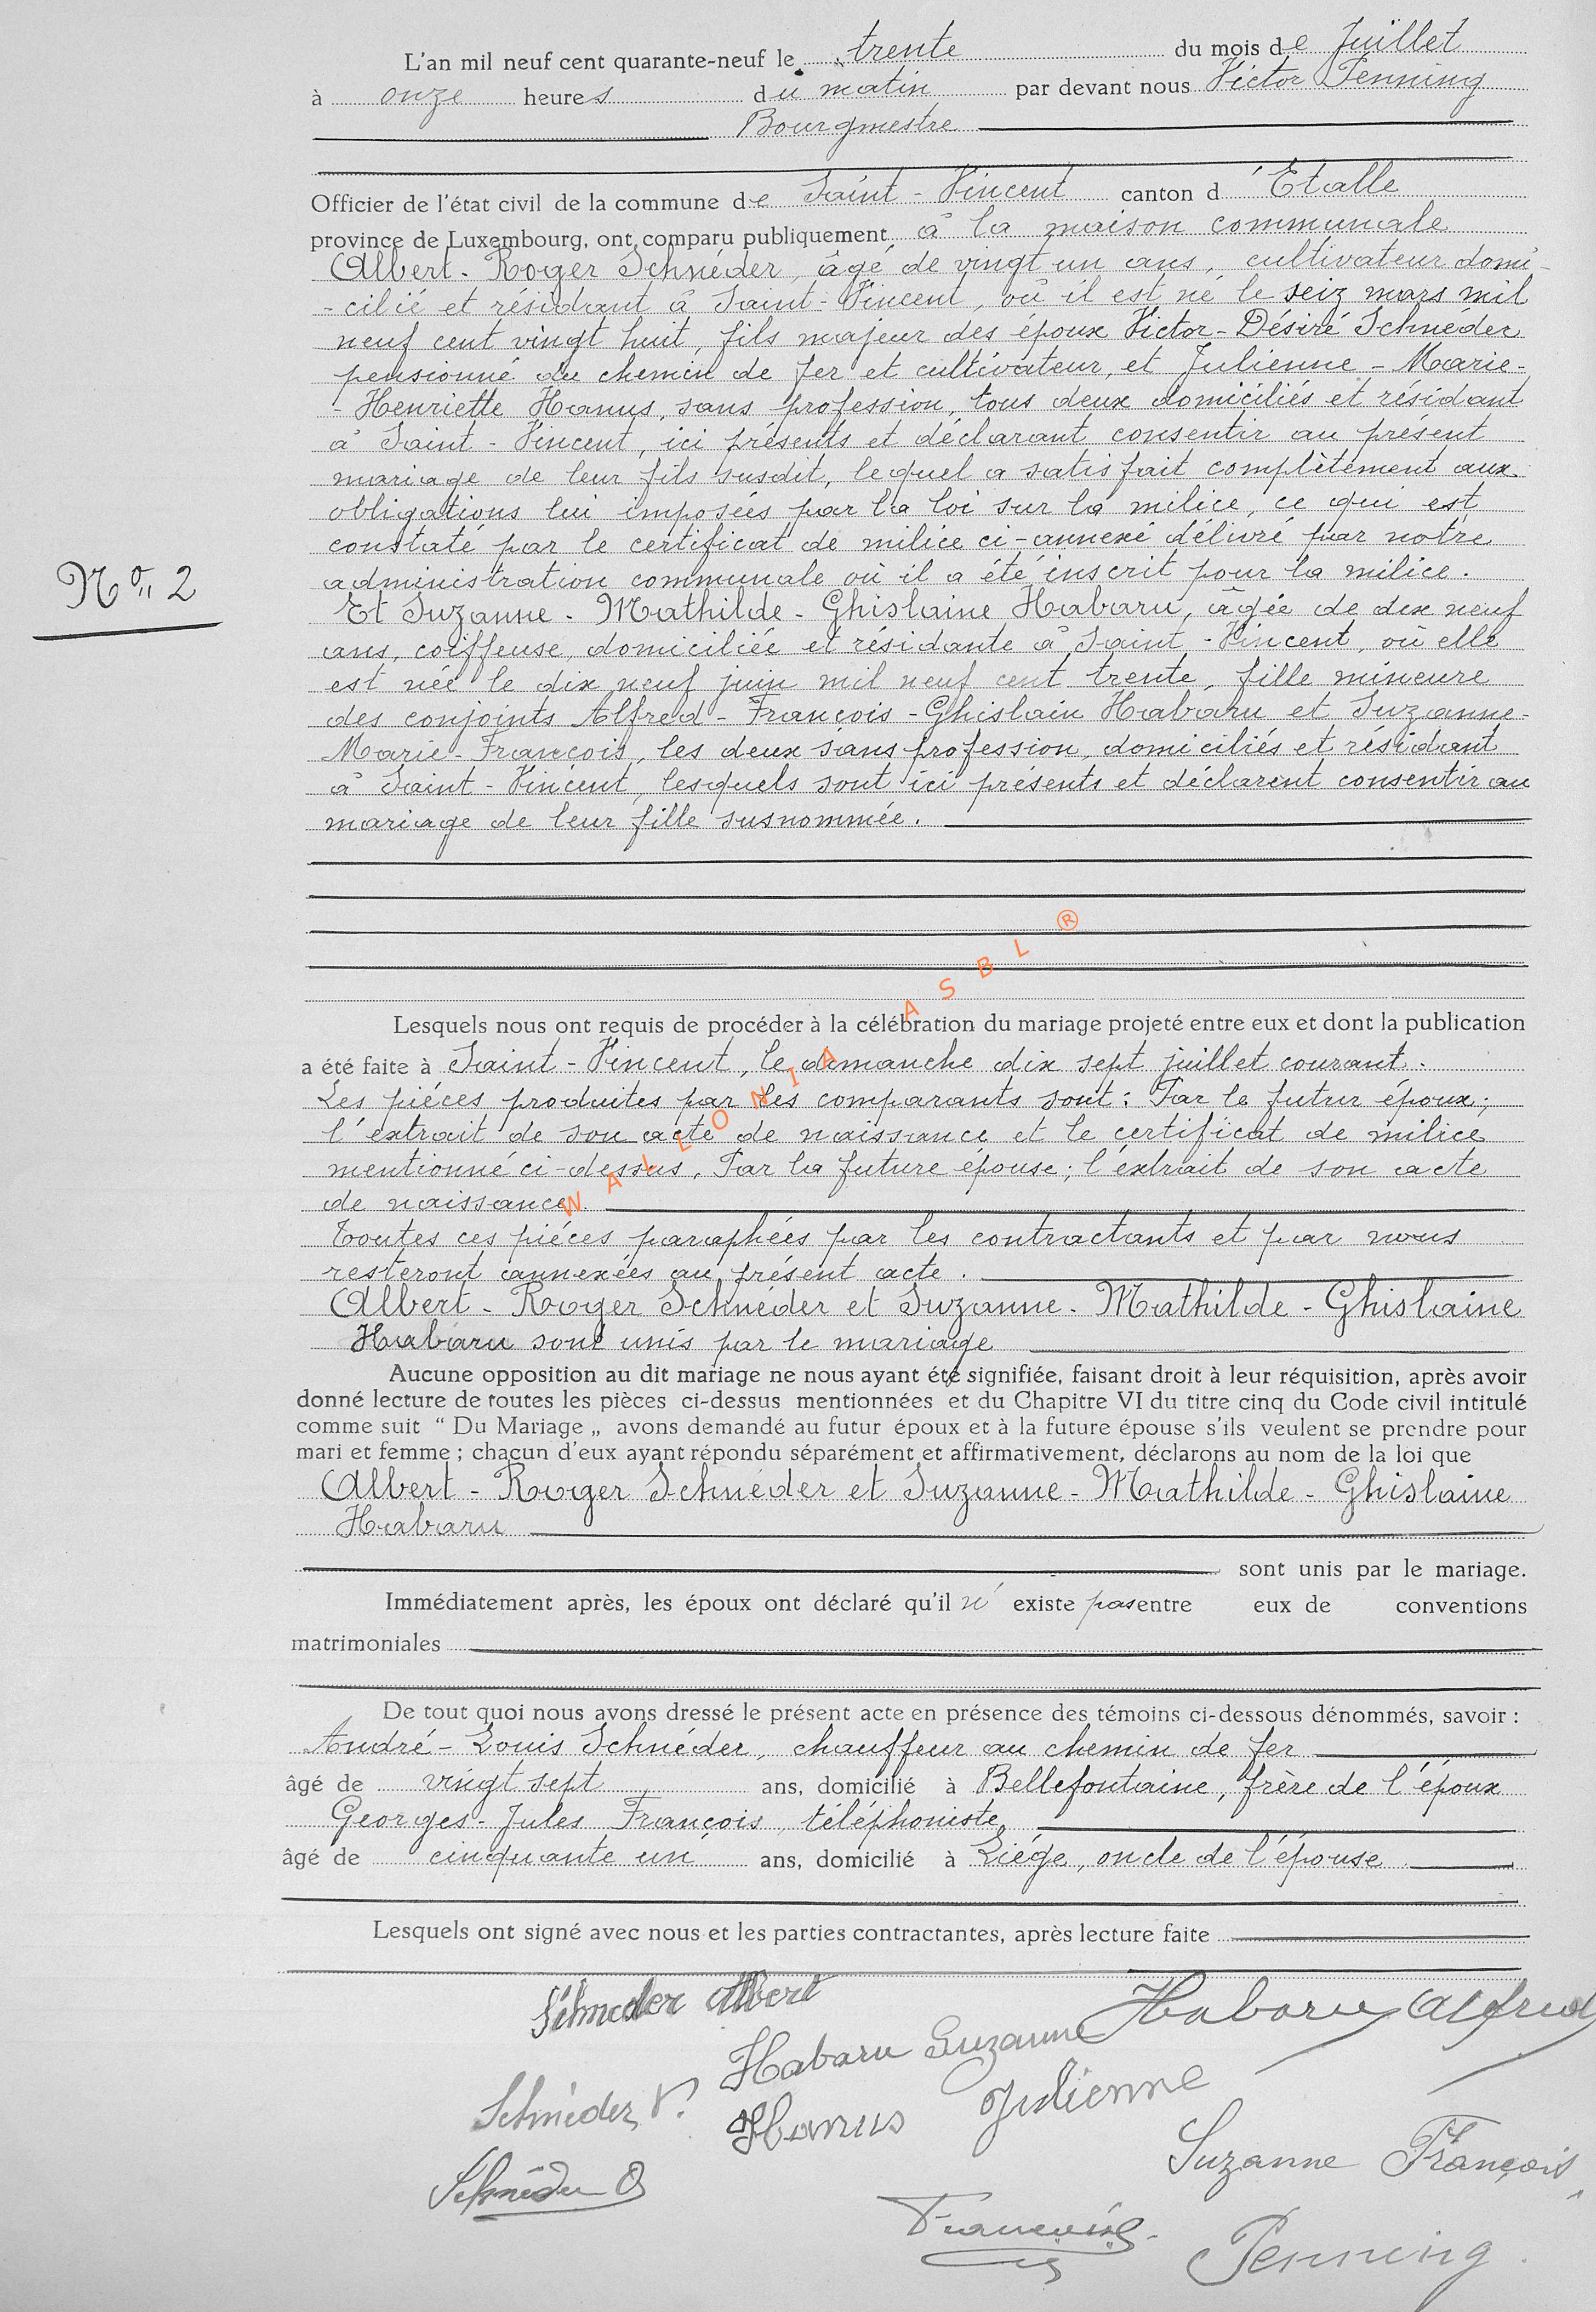 L'an mil neuf cent quarante-neuf le trente du mois de Juillet
à onze heures du matin par devant nous Victor Penning
Bourgmestre
Officier de l'état civil de la commune de Saint-Vincent canton d'Etalle
province de Luxembourg, ont comparu publiquement à la maison communale
Albert-Roger Schnéder, âgé de vingt un ans, cultivateur domi-
-cilié et résidant à Saint-Vincent, où il est né le seiz mars mil
neuf cent vingt huit, fils majeur des époux Victor-Désiré Schnéder
pensionné du chemin de fer et cultivateur, et Julienne-Marie-
-Henriette Hanus, sans profession, tous deux domiciliés et résidant
à Saint-Vincent, ici présents et déclarant consentir au présent
mariage de leur fils susdit, lequel a satisfait complètement aux
obligations lui imposées par la loi sur la milice, ce qui est
constaté par le certificat de milice ci-annexé délivré par notre
administration communale où il a été inscrit pour la milice.
N° 2
Et Suzanne-Mathilde-Ghislaine Habaru, âgée de dix neuf
ans, coiffeuse, domiciliée et résidante à Saint-Vincent, où elle
est née le dix neuf juin mil neuf cent trente, fille mineure
des conjoints Alfred-François-Ghislain Habaru et Suzanne-
Marie-François, les deux sans profession, domiciliés et résidant
à Saint-Vincent, lesquels sont ici présents et déclarent consentir au
mariage de leur fille susnommée.
Lesquels nous ont requis de procéder à la célébration du mariage projeté entre eux et dont la publication
a été faite à Saint-Vincent, le dimanche dix sept juillet courant.
Les pièces produites par les comparants sont: Par le futur époux;
l'extrait de son acte de naissance et le certificat de milice
mentionné ci-dessus. Par la future épouse; l'extrait de son acte
de naissance.
WALLONIA ASBL ®
Toutes ces pièces paraphées par les contractants et par nous
resteront annexées au présent acte.
Albert-Roger Schnéder et Suzanne-Mathilde-Ghislaine
Habaru sont unis par le mariage
Aucune opposition au dit mariage ne nous ayant été signifiée, faisant droit à leur réquisition, après avoir
donné lecture de toutes les pièces ci-dessus mentionnées et du Chapitre VI du titre cinq du Code civil intitulé
comme suit “ Du Mariage „ avons demandé au futur époux et à la future épouse s'ils veulent se prendre pour
mari et femme ; chacun d'eux ayant répondu séparément et affirmativement, déclarons au nom de la loi que
Albert-Roger Schnéder et Suzanne-Mathilde-Ghislaine
Habaru
sont unis par le mariage.
Immédiatement après, les époux ont déclaré qu'il n' existe pas entre eux de conventions
matrimoniales
De tout quoi nous avons dressé le présent acte en présence des témoins ci-dessous dénommés, savoir :
André-Louis Schnéder, chauffeur au chemin de fer
âgé de vingt sept ans, domicilié à Bellefontaine, frère de l'époux
Georges-Jules François, téléphoniste
âgé de cinquante un ans, domicilié à Liége, oncle de l'épouse
Lesquels ont signé avec nous et les parties contractantes, après lecture faite
Schneder Albert
Habaru Alfred
Habaru Suzanne
Schnéder V.
Hanus Julienne
Suzanne François
Schnéder
François
Penning